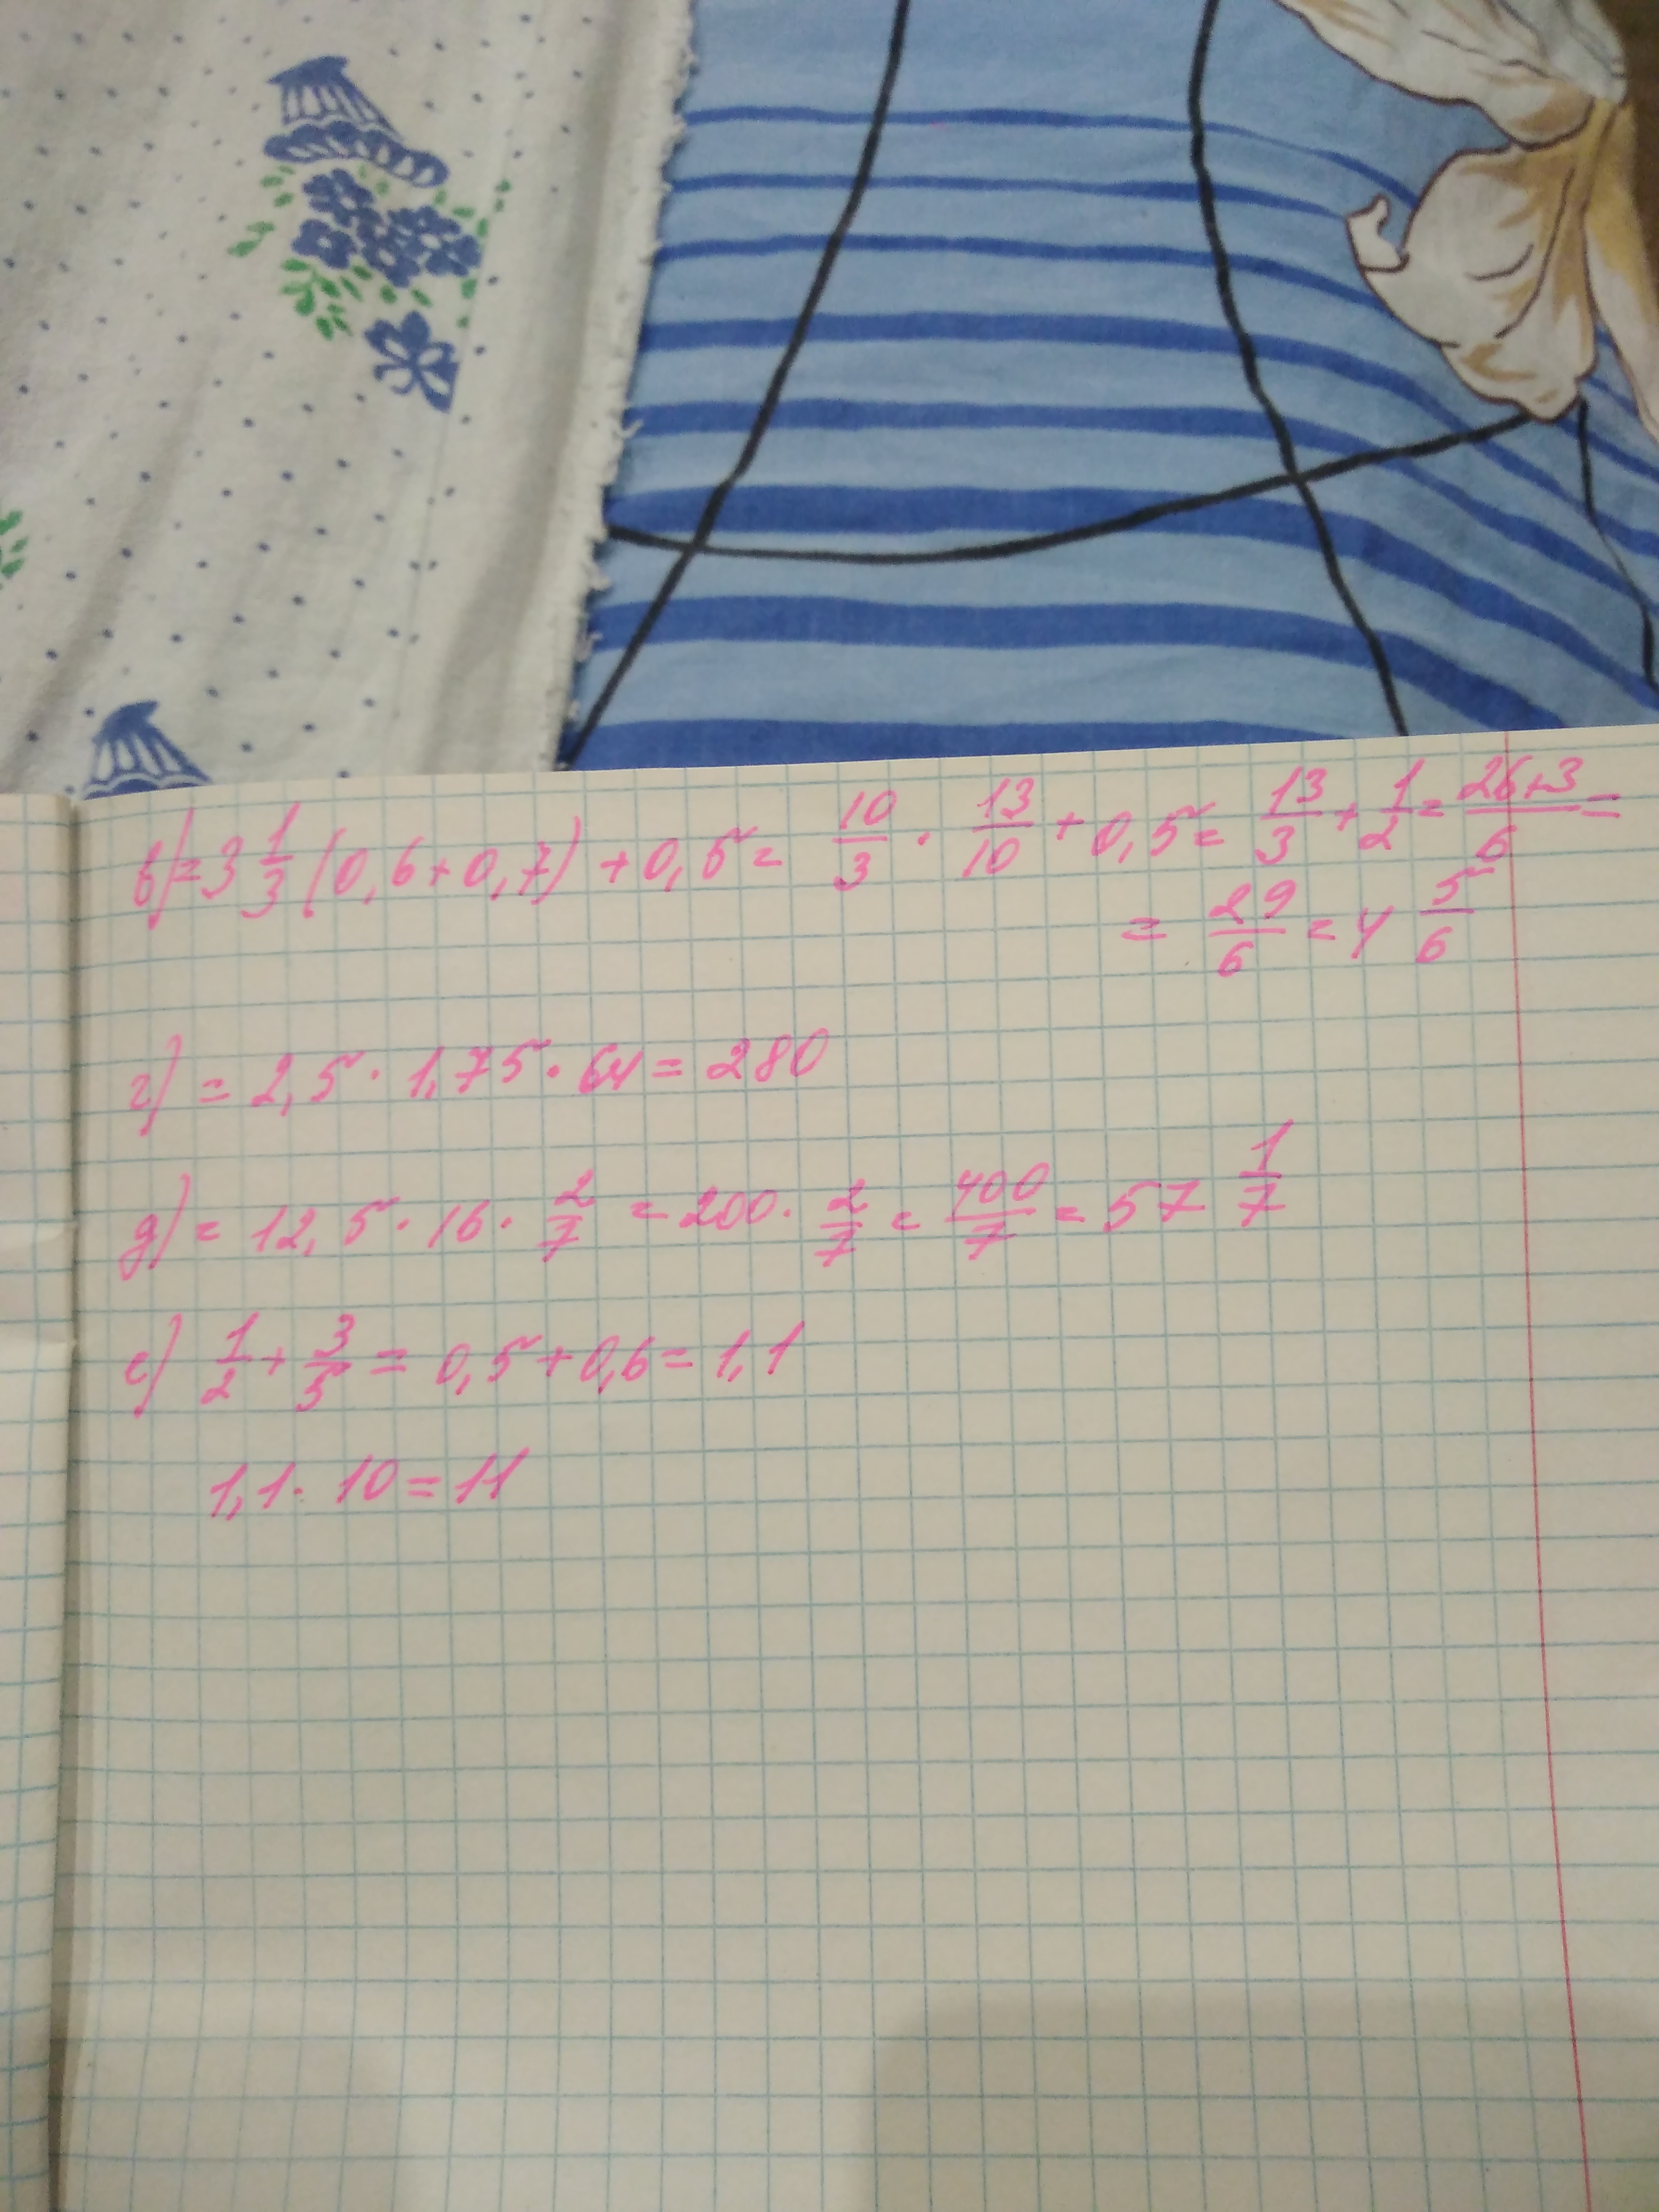 в) = 3 1/3 (0,6 + 0,7) + 0,5 = 10/3 · 13/10 + 0,5 = 13/3 + 1/2 = 26+3/6 =
= 29/6 = 4 5/6
г) = 2,5 · 1,75 · 64 = 280
д) = 12,5 · 16 · 2/7 = 200 · 2/7 = 400/7 = 57 1/7
е) 1/2 + 3/5 = 0,5 + 0,6 = 1,1
1,1 · 10 = 11